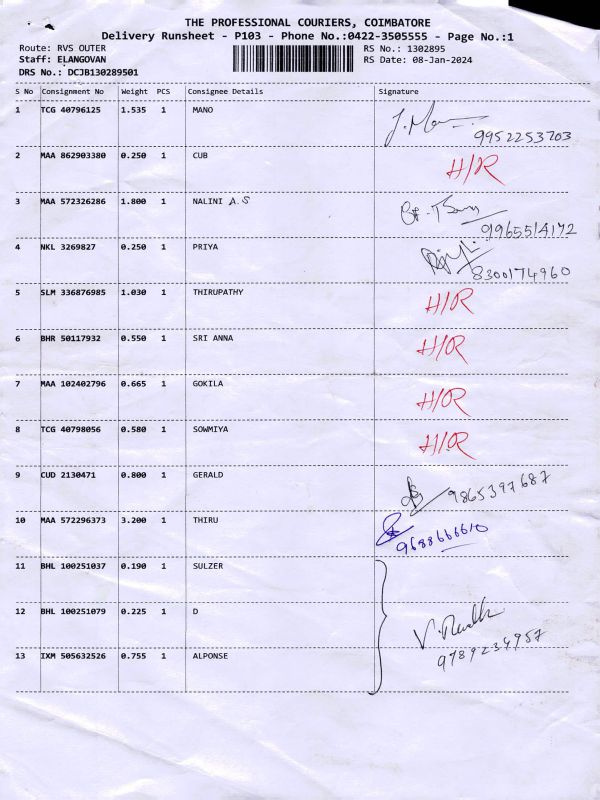 THE PROFESSIONAL COURIERS, COIMBATORE
Delivery Runsheet - P103 - Phone No.:0422-3505555 - Page No.:1
Route: RVS OUTER RS No.: 1302895
Staff: ELANGOVAN RS Date: 08-Jan-2024
DRS No.: DCJB130289501
S No Consignment No Weight PCS Consignee Details Signature
1 TCG 40796125 1.535 1 MANO
9952253703
2 MAA 862903380 0.250 1 CUB H/R
3 MAA 572326286 1.800 1 NALINI A.S
9965514172
4 NKL 3269827 0.250 1 PRIYA
8300174960
5 SLM 336876985 1.030 1 THIRUPATHY H/R
6 BHR 50117932 0.550 1 SRI ANNA H/R
7 MAA 102402796 0.665 1 GOKILA H/R
8 TCG 40798056 0.580 1 SOWMIYA H/R
9 CUD 2130471 0.800 1 GERALD 9865397687
10 MAA 572296373 3.200 1 THIRU
9688666610
11 BHL 100251037 0.190 1 SULZER
12 BHL 100251079 0.225 1 D
13 IXM 505632526 0.755 1 ALPONSE 9789234957